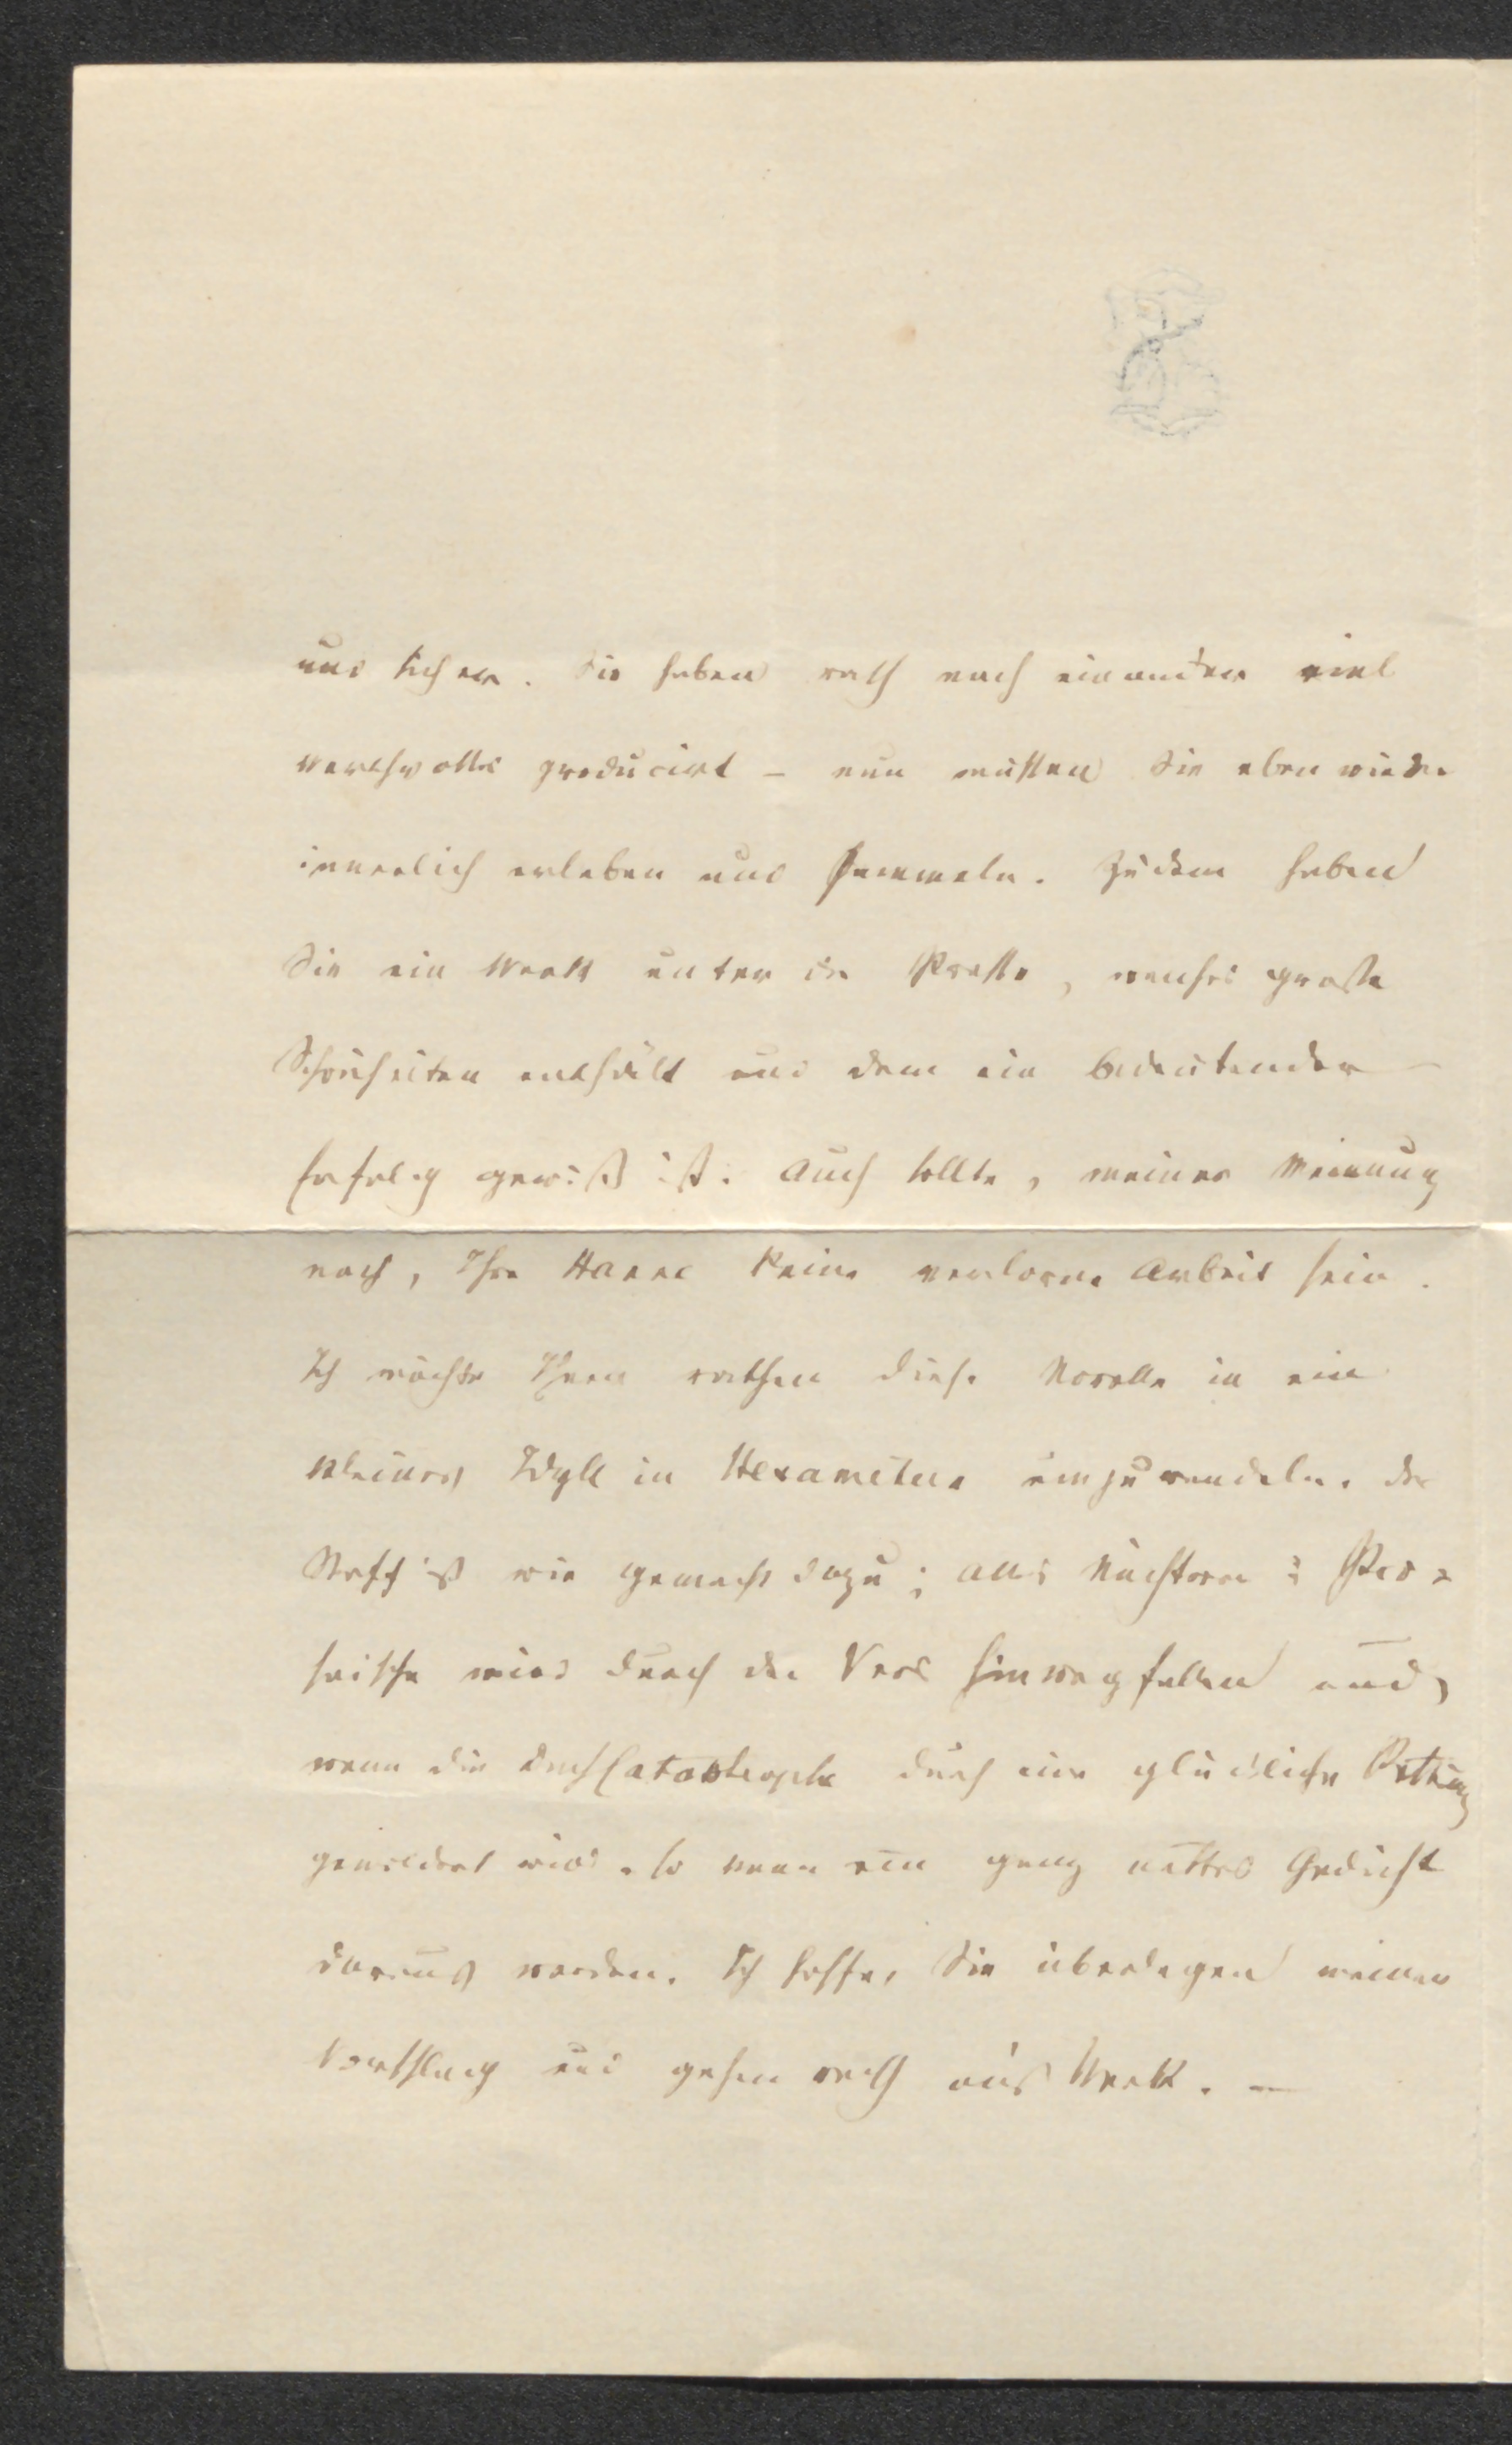 und sicher. Sie haben rasch nach einander viel
werthvolles producirt – nun müssen Sie eben wieder
innerlich erleben und sammeln. Zudem haben
Sie ein Werk unter der Presse, welches große
Schönheiten enthält und dem ein bedeutender
Erfolg gewiß ist. Auch sollte, meiner Meinung
nach, Ihre Hanna keine verlorne Arbeit sein.
Ich möchte Ihnen rathen diese Novelle in ein
kleines Idyll in Hexametern umzuwandeln. Der
Stoff ist wie gemacht dazu; alles Nüchterne u Pro-
saische wird durch den Vers hinwegfallen und,
wenn die Catastrophe durch eine glückliche Rettung
gemildert wird, so kann ein ganz nettes Gedicht
daraus werden. Ich hoffe, Sie überlegen meinen
Vorschlag und gehen rasch an's Werk. –